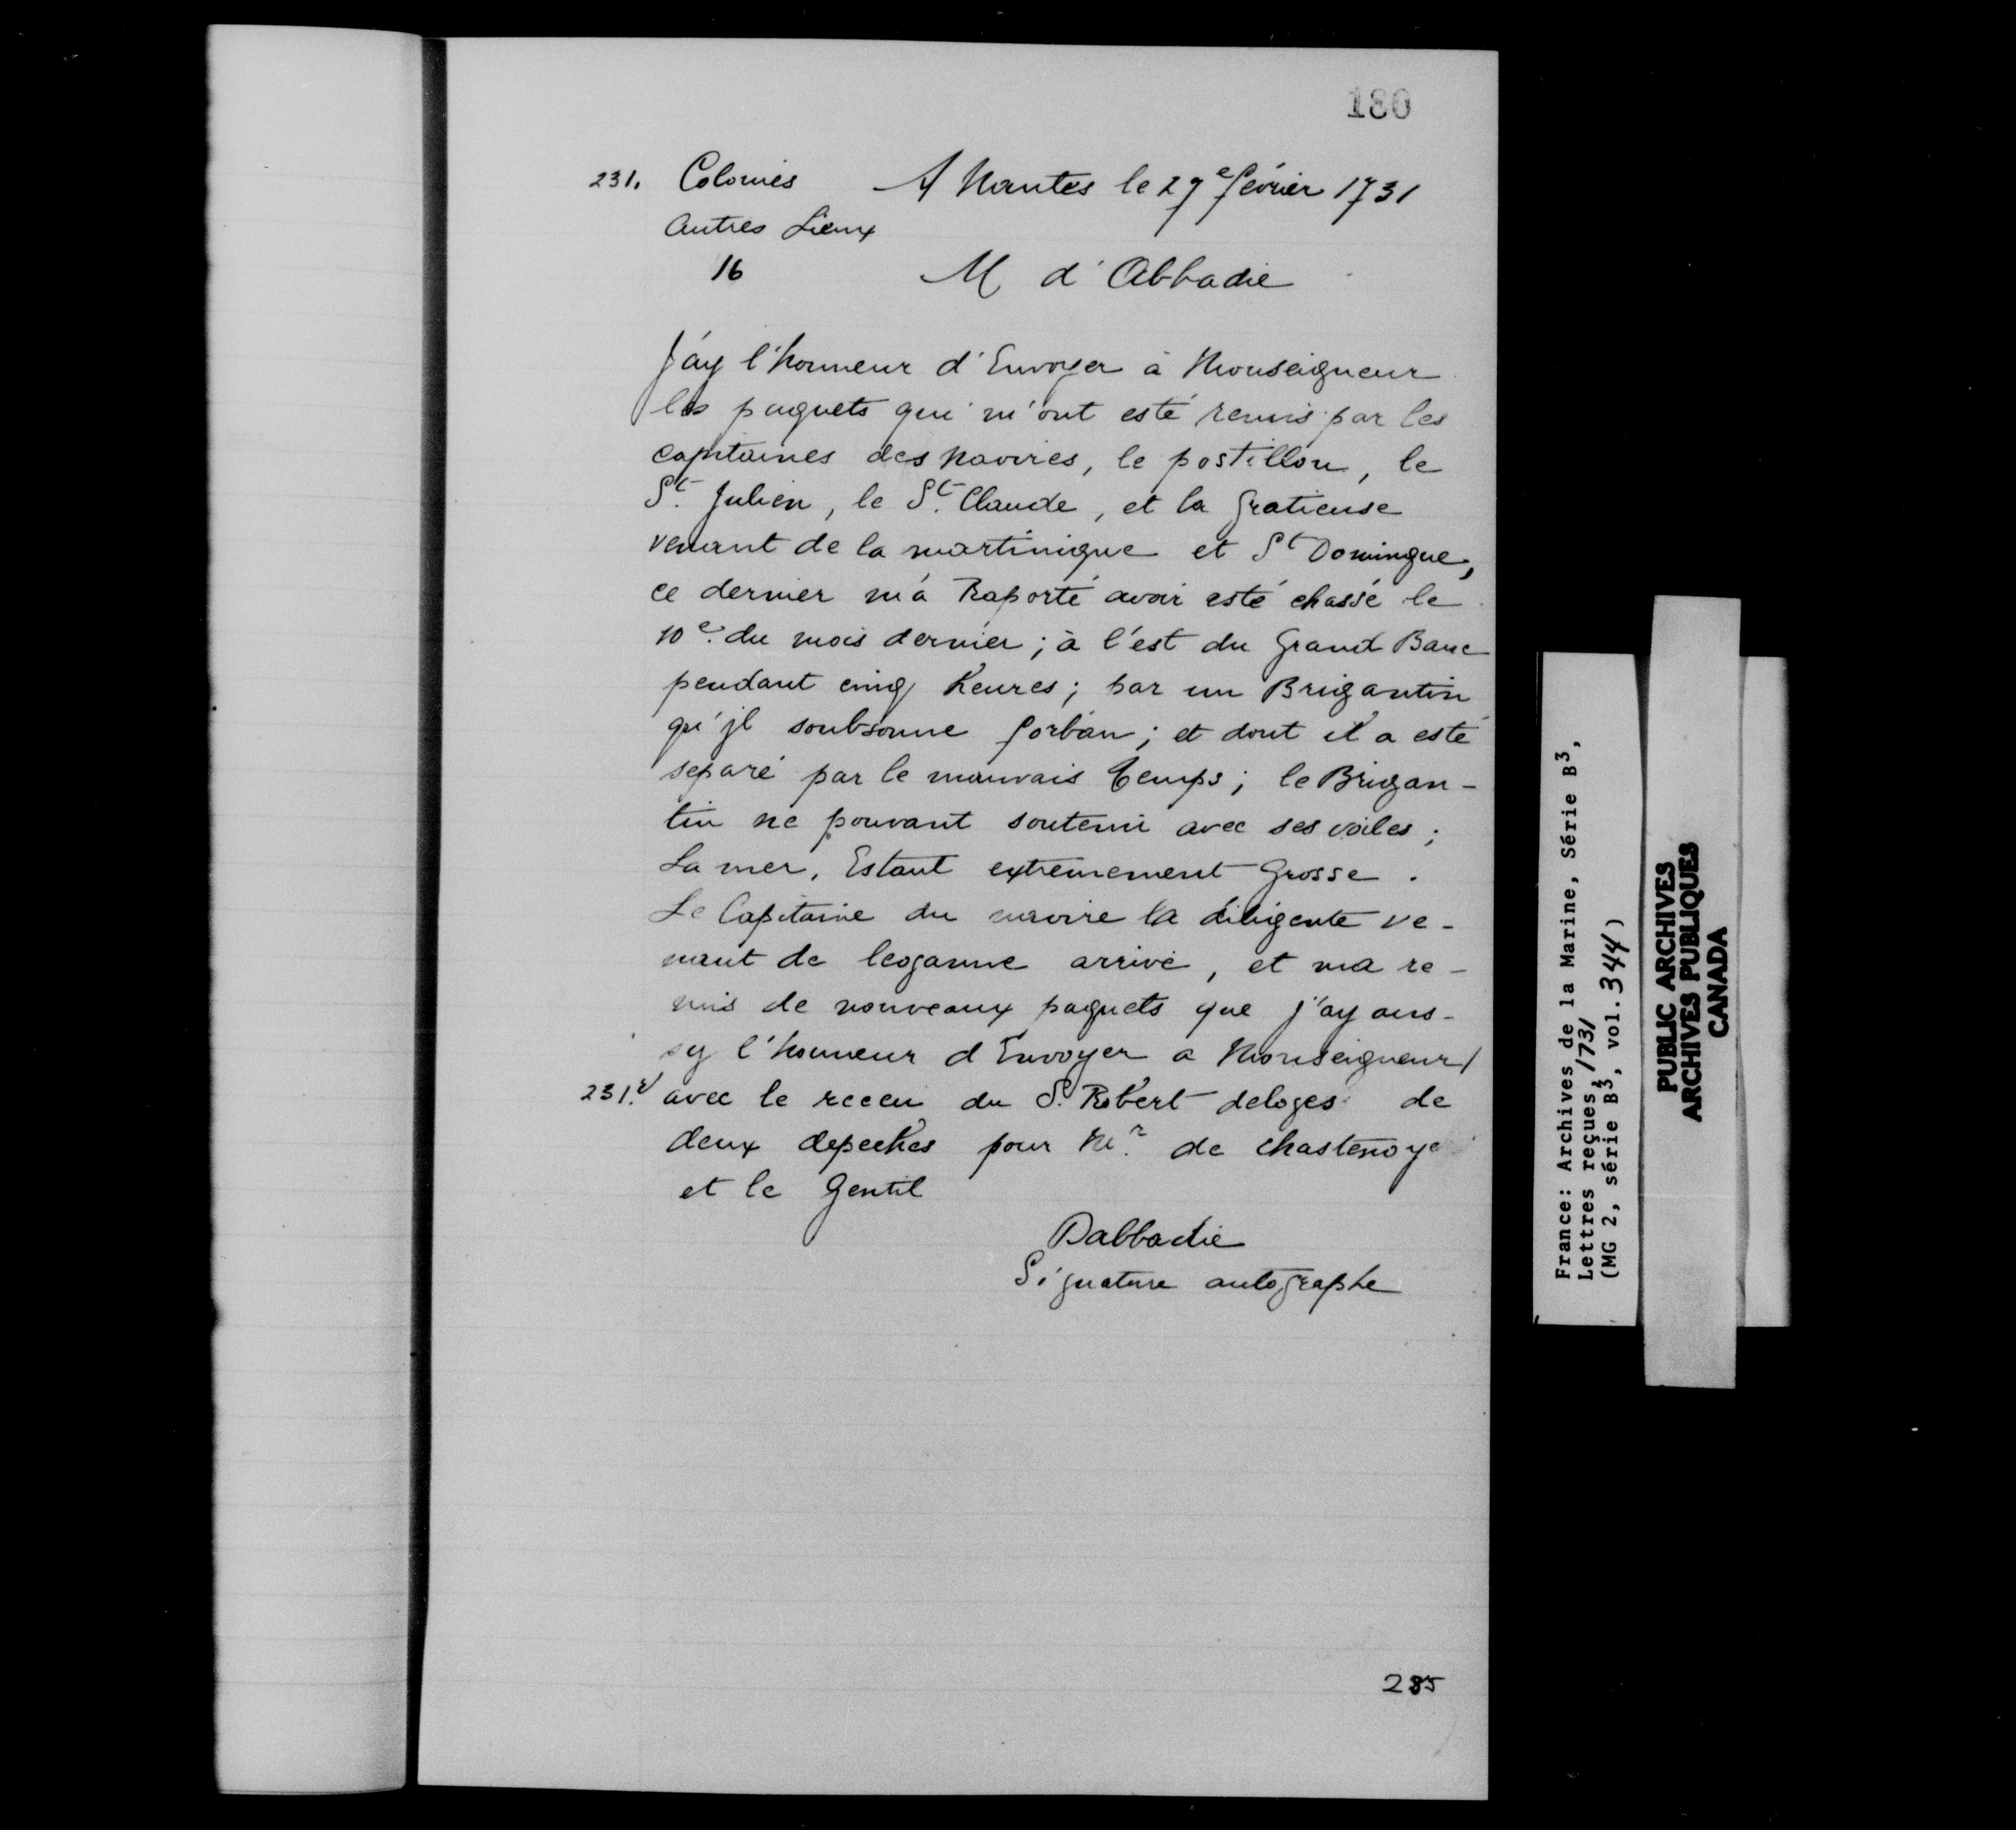 180
231. Colonies A Nantes le 27e février 1731
autres Lieux
16 M d'Abbadie
J'ay l'honneur d'Envoyer à Monseigneur
les paquets qui m'ont esté remis par les
capitaines des navires, le postillon, le
St. Julien, le St. Claude, et la Gratieuse
venant de la martinique et St Domingue,
ce dernier m'a Raporté avoir esté chassé le
10e. du mois dernier; à l'est du Grand Banc
pendant cinq heures; par un Brigantin
qu'jl soubsonne forban; et dont il a esté
separé par le mauvais temps; le Brigan-
tin ne pouvant soutenir avec ses voiles;
La mer, Estant extremement Grosse.
Le Capitaine du navire la diligente ve-
nant de leoganne arrivé, et ma re-
mis de nouveaux paquets que j'ay aus-
sy l'honneur d'Envoyer a Monseigneur/
231.v avec le receu du S. Robert deloges de
deux depeches pour Mr. de chastenoye
et le Gentil
Dabbadie
Signature autographe
285
France: Archives de la Marine, Série B3,
Lettres reçues, 1731
(MG 2, série B3, vol. 344)
PUBLIC ARCHIVES
ARCHIVES PUBLIQUES
CANADA